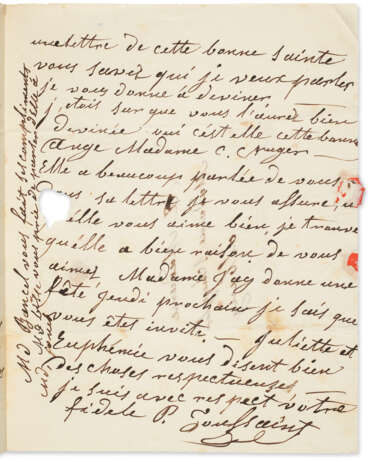 une lettre de cette bonne Sainte
vous savez qui je veux parler
je vous donne à deviner
j'etais sur que vous l'aurez bien
devinée oui c'est elle cette bonne
ange Madame C. Nuger
Elle a beaucoup parlée de vous
dans sa lettre je vous assure
qu'elle vous aime bien, je trouve
qu'elle a bien raison de vous
aimer Madame Say donne une
fête jeudi prochain je sais que
vous êtes invité Juliette et
Euphémie vous disent bien
des choses respectueuses
je suis avec respect votre
fidele P. Toussaint
Md Bancel vous fait ses compliments
Md vous prie de parler d'elle à